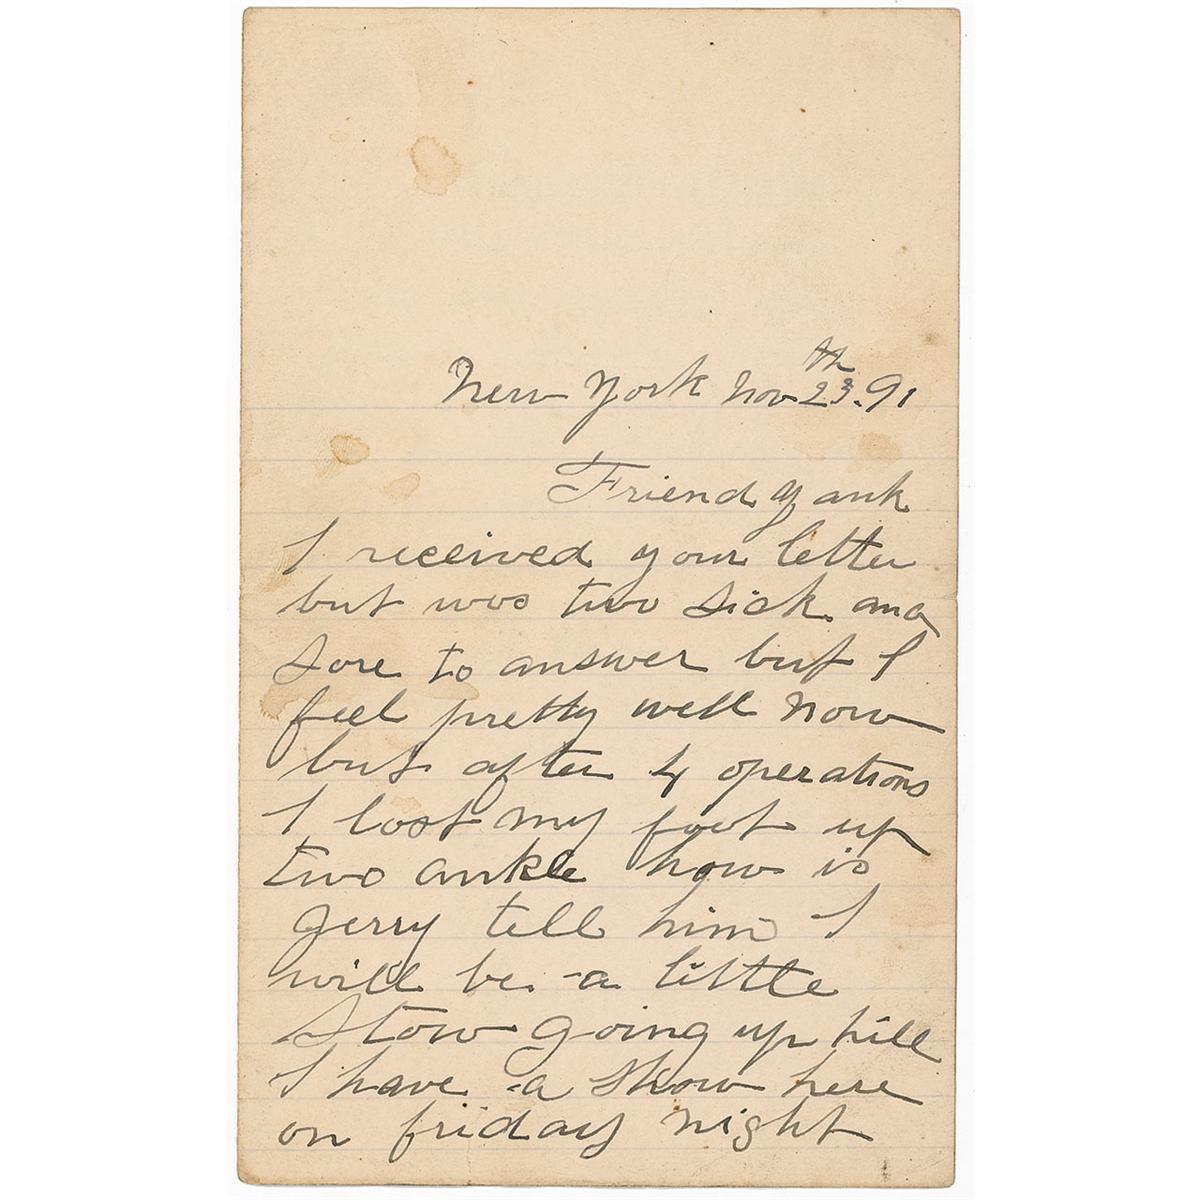 New York Nov 23th. 91
Friend Yank
I received your letter
but was two sick and
sore to answer but I
feel pretty well now
but after 4 operations
I lost my foot up
two ankle how is
Jerry tell him I
will be a little
Slow going up hill
I have a Show here
on friday night